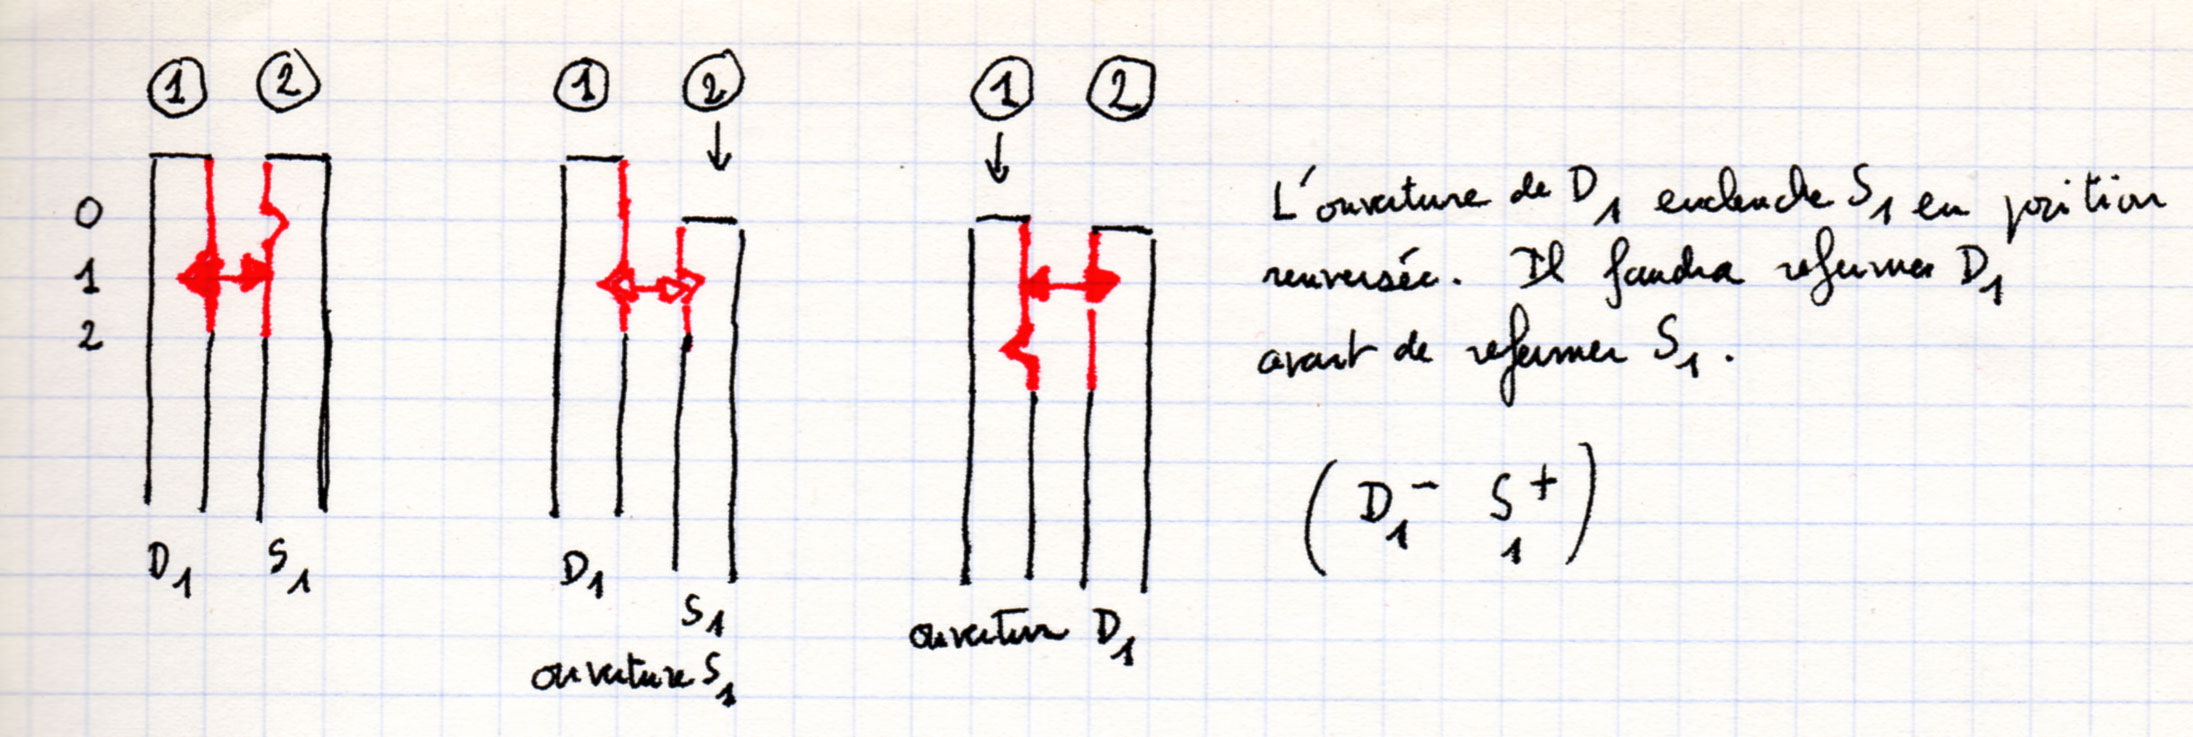 1 2 1 2 1 2
0
1
2
D1 S1
D1
S1
ouverture S1
ouverture D1
L'ouverture de D1 enclenche S1 en position
renversée. Il faudra refermer D1
avant de refermer S1.
(D1- S1+)